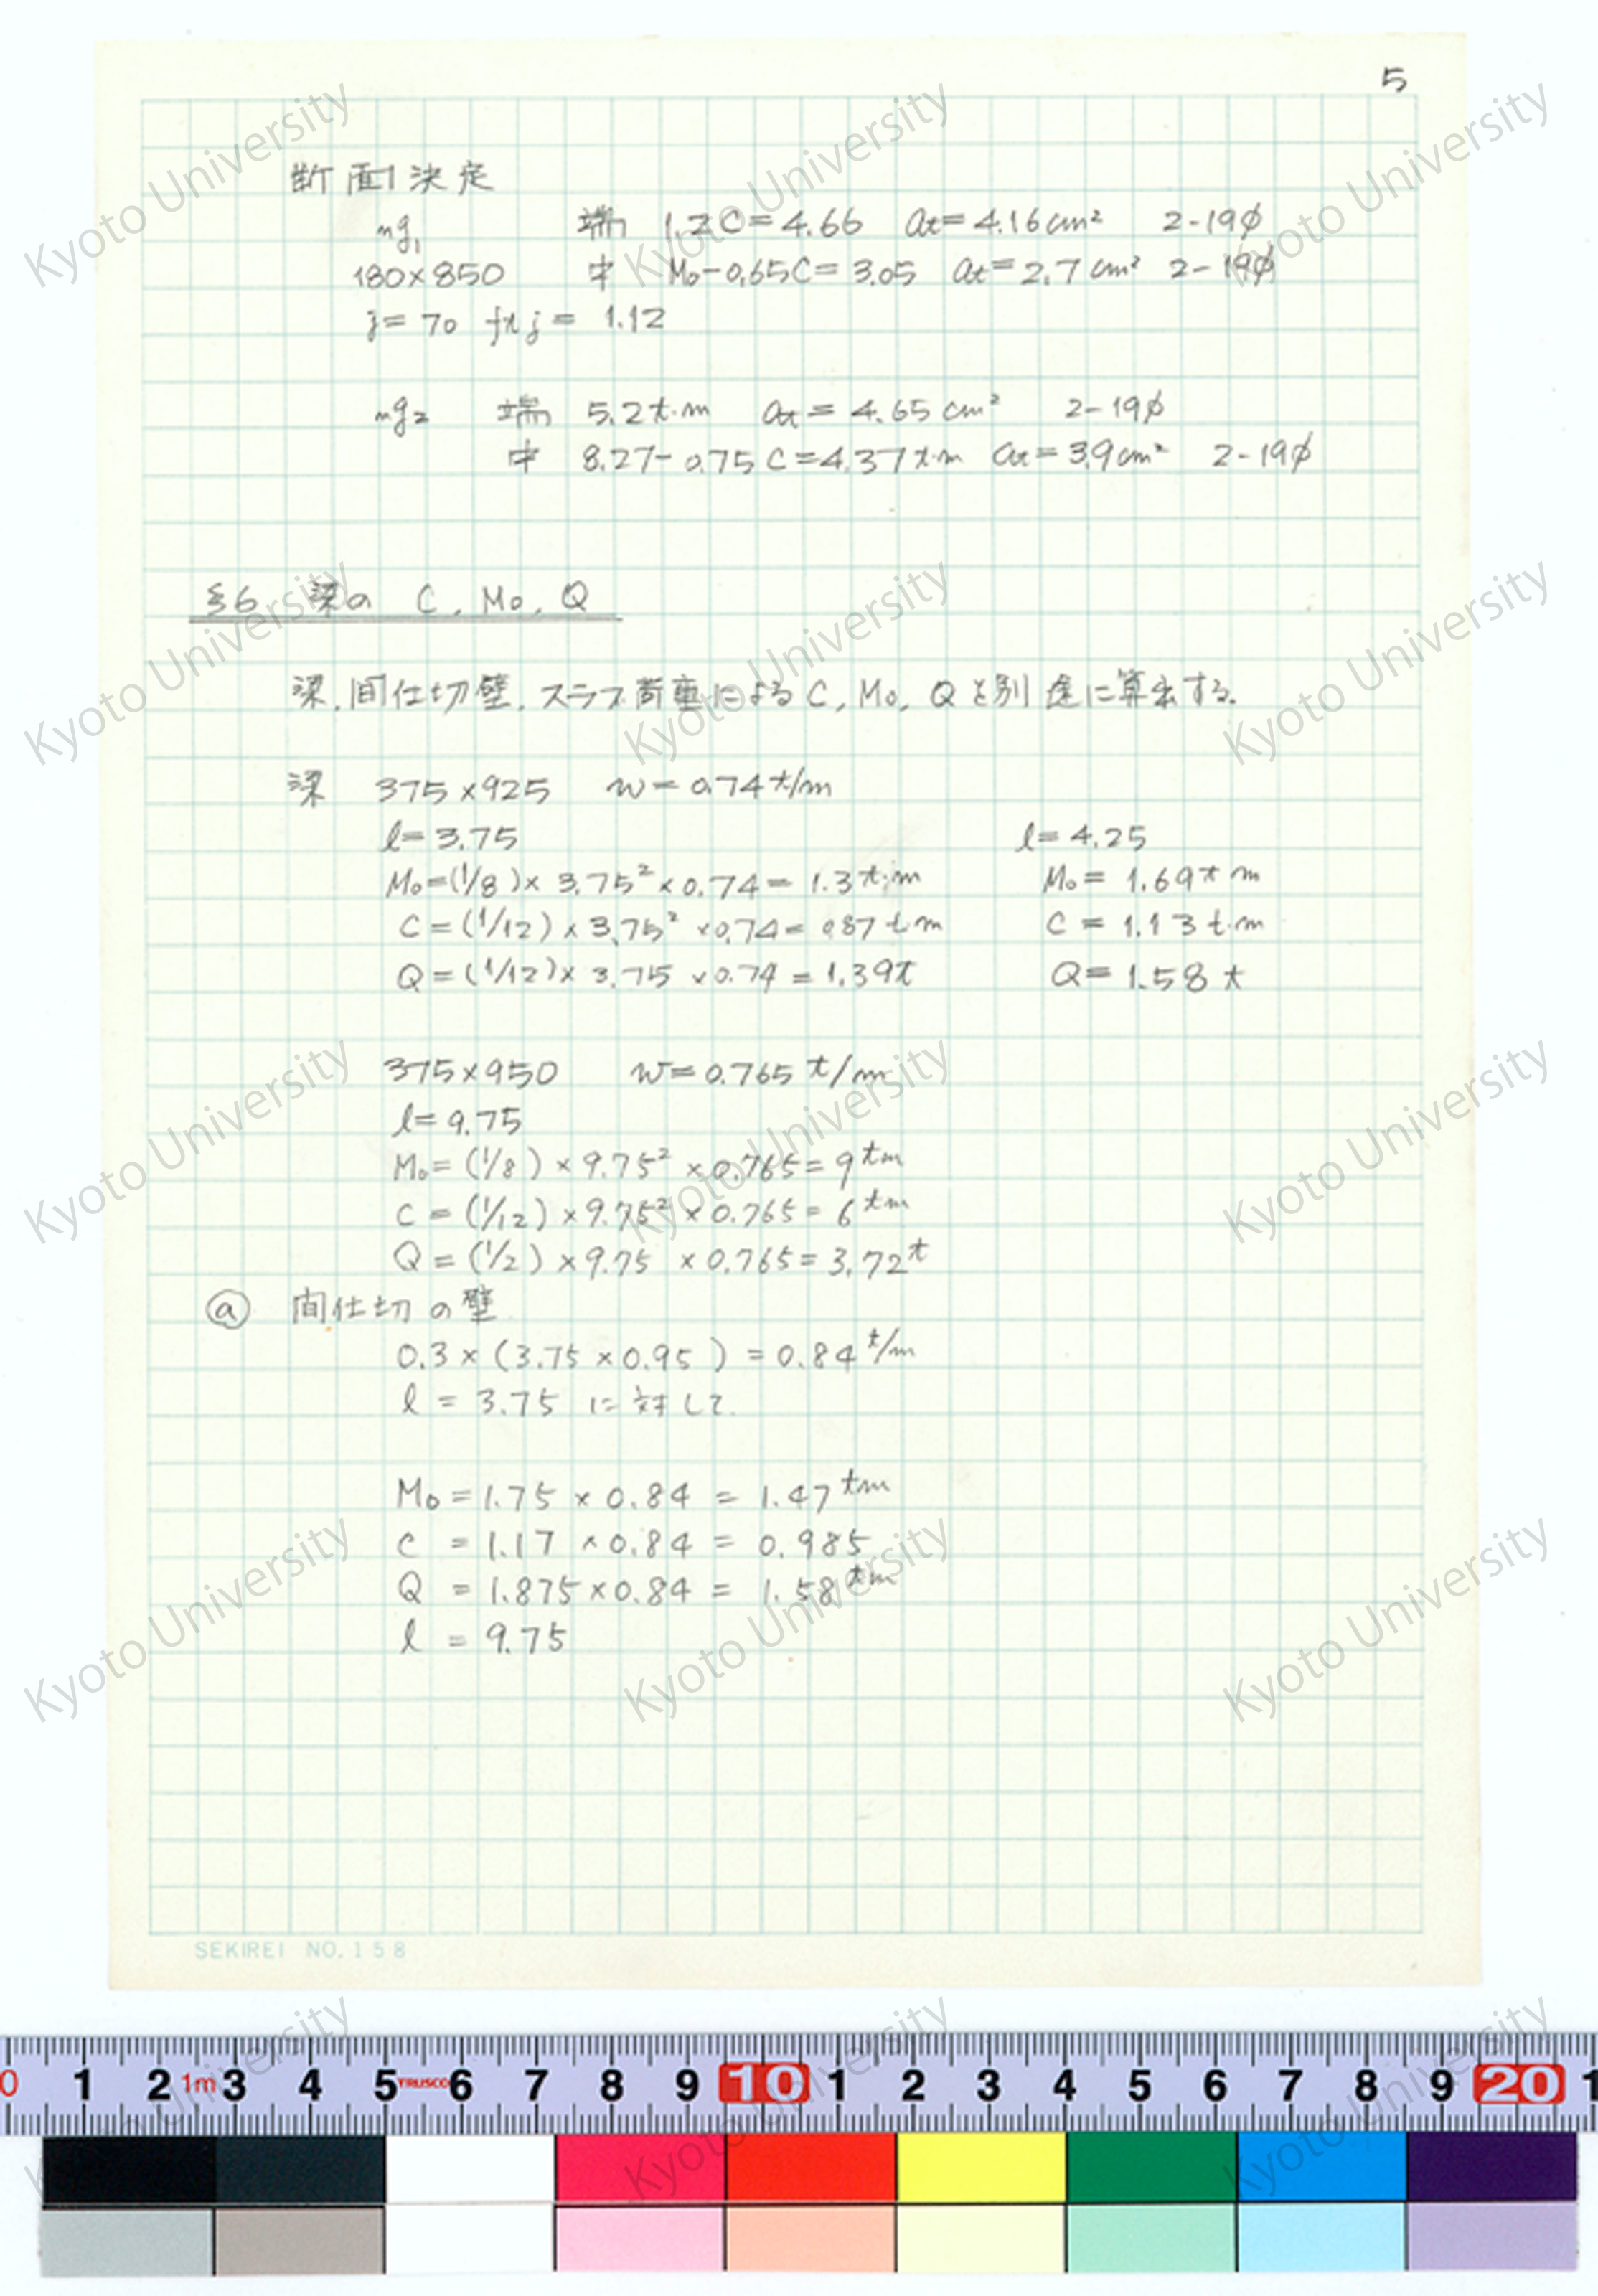 5
断面決定
mg₁ 端 1.2C=4.66 at=4.16cm² 2-19φ
180×850 中 M₀-0.65C=3.05 at=2.7cm² 2-19φ
j=70 ft j= 1.12
mg₂ 端 5.2t·m at=4.65cm² 2-19φ
中 8.27-0.75C=4.37t·m at=3.9cm² 2-19φ
§6 梁の C, M₀, Q
梁,間仕切壁,スラブ荷重によるC, M₀, Qを別途に算出する.
梁 375×925 w=0.74t/m
l=3.75 l=4.25
M₀=(1/8)×3.75²×0.74=1.3t·m M₀=1.69t m
C=(1/12)×3.75²×0.74=0.87t·m C=1.13t·m
Q=(1/12)×3.75×0.74=1.39t Q=1.58t
375×950 w=0.765t/m
l=9.75
M₀=(1/8)×9.75²×0.765=9tm
C=(1/12)×9.75²×0.765=6tm
Q=(1/2)×9.75×0.765=3.72t
ⓐ 間仕切の壁
0.3×(3.75×0.95)=0.84t/m
l=3.75 に対して.
M₀=1.75×0.84=1.47tm
C=1.17×0.84=0.985
Q=1.875×0.84=1.58tm
l=9.75
SEKIREI NO.158
0 1 2 1m 3 4 5 TRUSCO 6 7 8 9 10 1 2 3 4 5 6 7 8 9 20 1
Kyoto University